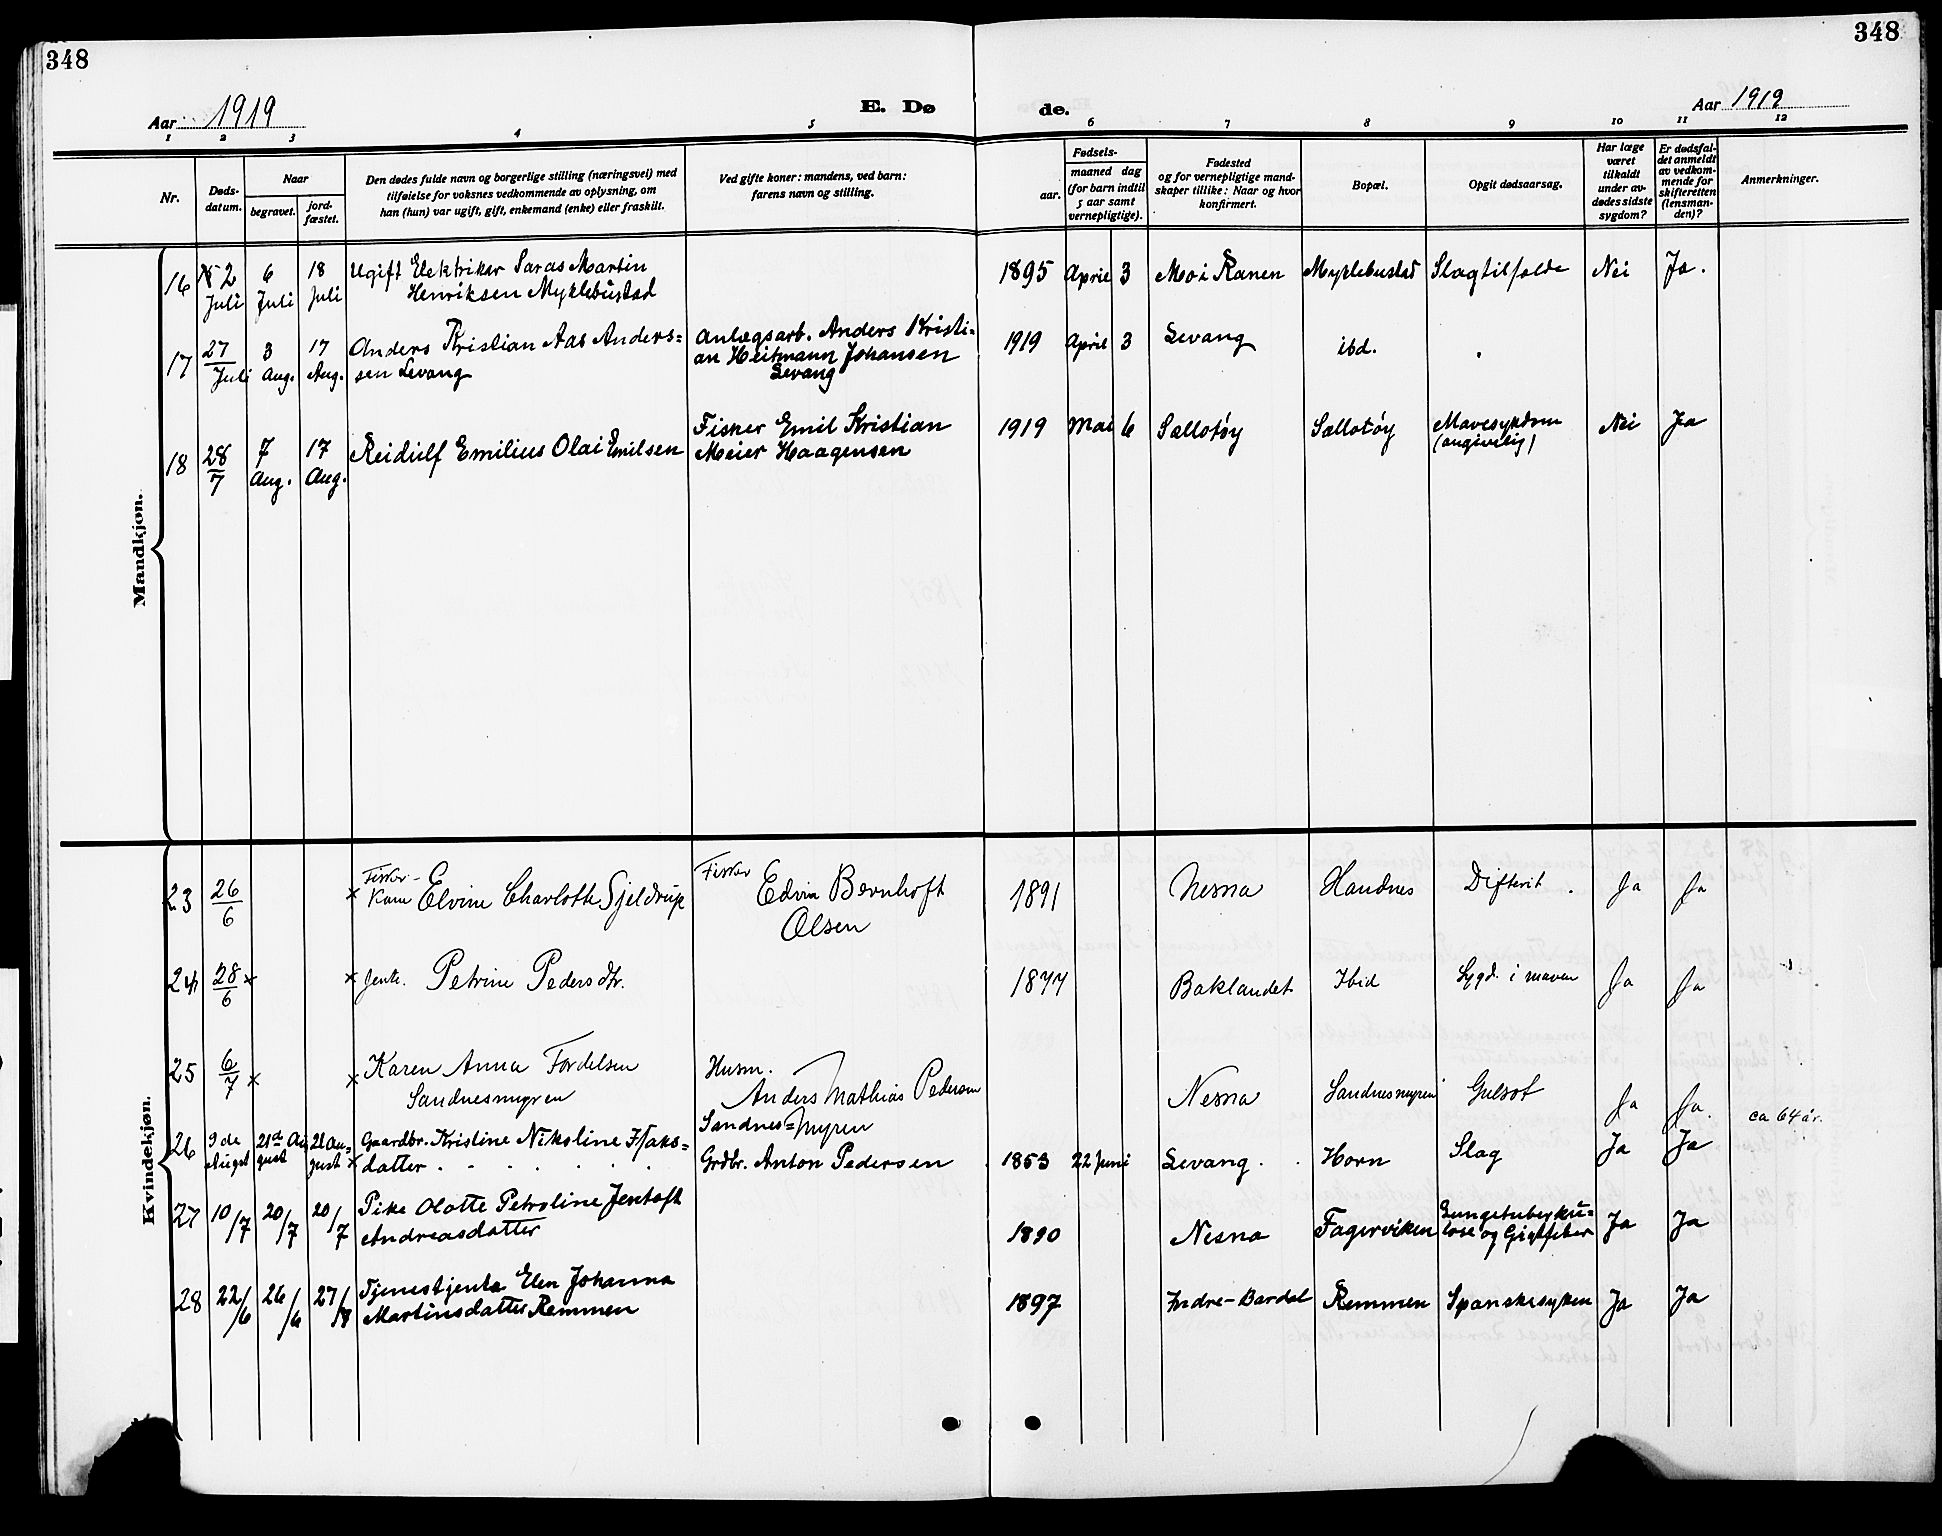 348
348
Aar 1919
E. Dø
de.
Aar 1919
1 2 3 4 5 6 7 8 9 10 11 12
Nr.
Døds-
datum.
Naar
begravet.
jord-
fæstet.
Den dødes fulde navn og borgerlige stilling (næringsvei) med
tilføielse for voksnes vedkommende av oplysning, om
han (hun) var ugift, gift, enkemand (enke) eller fraskilt.
Ved gifte koner: mandens, ved barn:
farens navn og stilling.
Fødsels-
aar.
maaned dag
(for barn indtil
5 aar samt
vernepligtige).
Fødested
og for vernepligtige mand-
skaper tillike: Naar og hvor
konfirmert.
Bopæl.
Opgit dødsaarsag.
Har læge
været
tilkaldt
under av-
dødes sidste
sygdom?
Er dødsfal-
det anmeldt
av vedkom-
mende for
skifteretten
(lensman-
den)?
Anmerkninger.
Mandkjøn.
16 2 6 18 Ugift Elektriker Saras Martin 1895 April 3 Mo i Ranen Myklebustad Slagtilfælde Nei Ja.
Juli Juli Juli Henriksen Myklebustad
17 27 3 17 Anders Kristian Aas Anders= Anlægsarb. Anders Kristi= 1919 April 3 Levang ibd.
Juli Aug. Aug. sen Levang an Heitmann Johansen
Levang
18 28/7 7 17 Reidulf Emilius Olai Emilsen Fisker Emil Kristian 1919 Mai 6 Sællotøy Sællotøy Mavesykdom Nei Ja
Aug. Aug. Meier Haagensen (angivelig)
Kvindekjøn.
23 26/6 x Fisker- Fisker
Kone Elvine Charlotte Sjeldrup Edvin Bernhoft 1891 Nesna Handnes Difterit. Ja Ja
Olsen
24 28/6 x x Jente. Petrine Pedersdtr. 1877 Baklandet Ibid Sygd. i maven Ja Ja
25 6/7 x x Karen Anna Fordelsen Husm. Nesna Sandnesmyren Gulsot Ja Ja. ca 64 år.
Sandnesmyren Anders Mathias Pedersen
Sandnes=myren
26 9de 21de Au 21 Au- Gaardbr. Kristine Nikoline Isaks= Grdbr. Anton Pedersen 1853 22 Juni Levang. Horn Slag Ja Ja
August gust gust x datter
27 10/7 20/7 20/7 Pike Olotte Petroline Jentoft 1890 Nesna Fagerviken Lungetuberku= Ja Ja
Andreasdatter lose og Gigtfeber
28 22/6 26/6 27/8 Tjenestjente Elen Johanna 1897 Indre-Bardal Remmen Spanskesyken Ja Ja
Martinsdatter Remmen